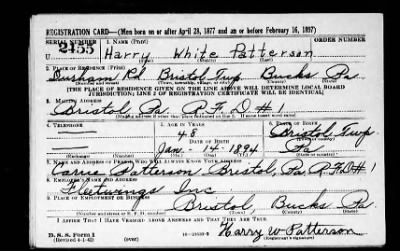 REGISTRATION CARD—(Men born on or after April 28, 1877 and on or before February 16, 1897)
SERIAL NUMBER 1. NAME (Print) ORDER NUMBER
U 2455 Harry White Patterson
(First) (Middle) (Last)
2. PLACE OF RESIDENCE (Print)
Durham Rd. Bristol Twp. Bucks Pa.
(Number and street) (Town, township, village, or city) (County) (State)
[THE PLACE OF RESIDENCE GIVEN ON THE LINE ABOVE WILL DETERMINE LOCAL BOARD
JURISDICTION; LINE 2 OF REGISTRATION CERTIFICATE WILL BE IDENTICAL]
3. MAILING ADDRESS
Bristol Pa. R F D # 1
4. TELEPHONE 5. AGE IN YEARS 6. PLACE OF BIRTH
48 Bristol Twp
DATE OF BIRTH (Town or county)
Jan - 14 - 1894 Pa
(Exchange) (Number) (Mo.) (Day) (Yr.) (State or country)
7. NAME AND ADDRESS OF PERSON WHO WILL ALWAYS KNOW YOUR ADDRESS
Carrie Patterson Bristol, Pa. R.F.D # 1
8. EMPLOYER'S NAME AND ADDRESS
Fleetwings Inc
9. PLACE OF EMPLOYMENT OR BUSINESS
Bristol, Bucks Pa.
(Number and street or R. F. D. number) (Town) (County) (State)
I AFFIRM THAT I HAVE VERIFIED ABOVE ANSWERS AND THAT THEY ARE TRUE.
D. S. S. Form 1
(Revised 4-1-42) (over) Harry W Patterson
(Registrant's signature)